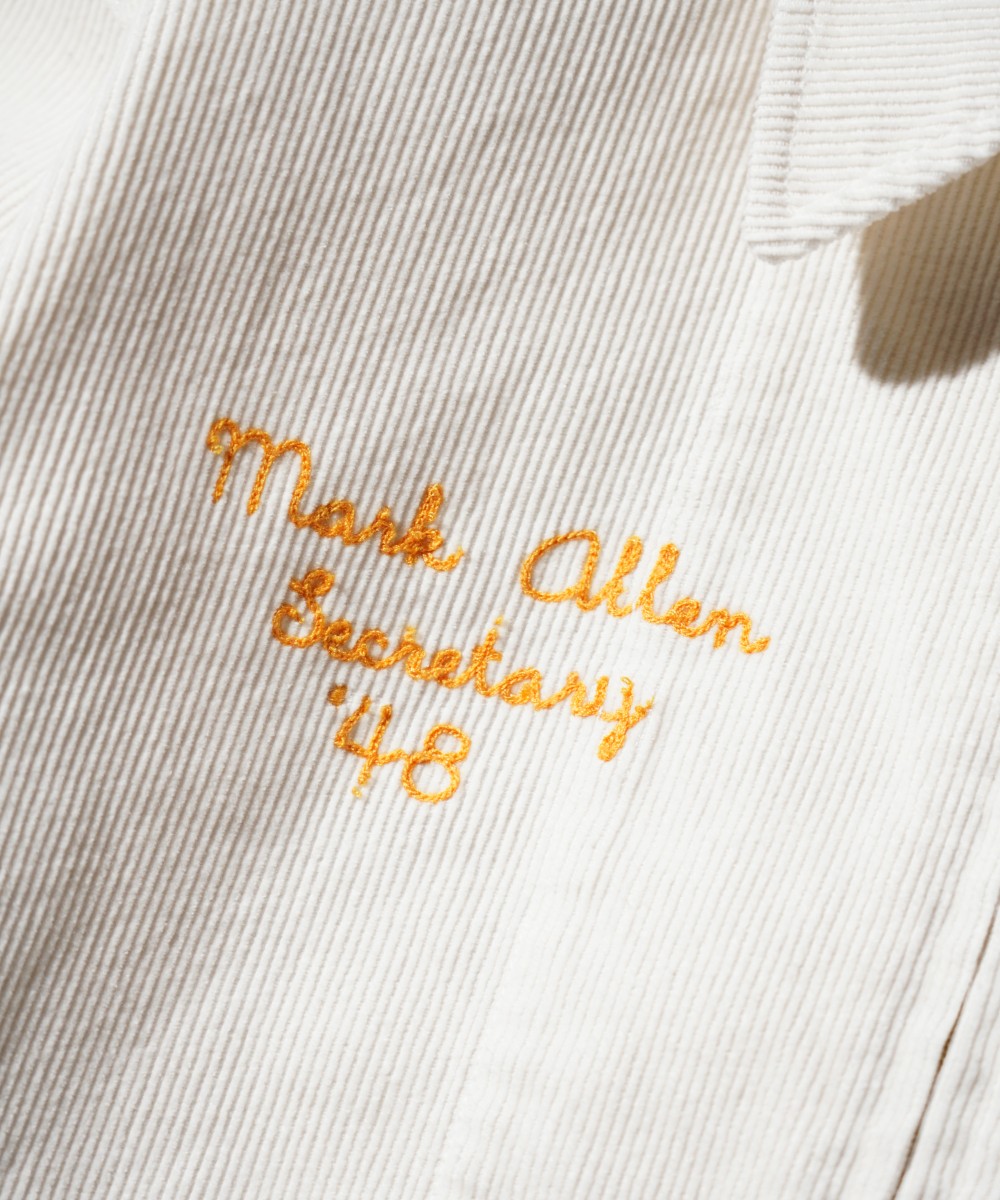 Mark Allen
Secretary
'48